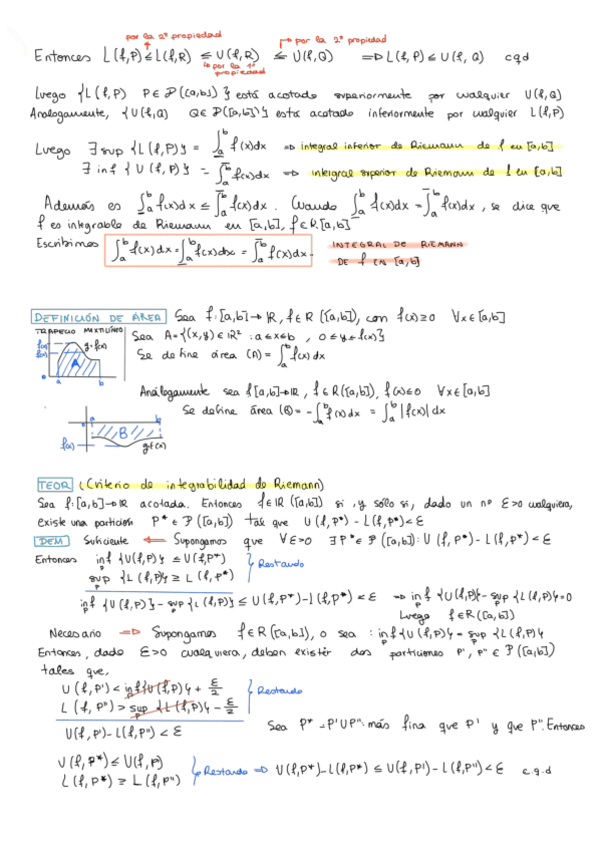 por la 2ª propiedad
por la 2ª propiedad
Entonces L(f,P) ≤ L(f,R) ≤ U(f,R) ≤ U(f,Q) ⇒ L(f,P) ≤ U(f,Q) cqd
por la 1ª propiedad
Luego {L(f,P) P∈P([a,b])} está acotado superiormente por cualquier U(f,Q)
Analogamente, {U(f,Q) Q∈P([a,b])} está acotado inferiormente por cualquier L(f,P)
Luego ∃ sup {L(f,P)} = ∫_a^b f(x)dx ⇒ integral inferior de Riemann de f en [a,b]
∃ inf {U(f,P)} = ∫_a^b f(x)dx ⇒ integral superior de Riemann de f en [a,b]
Además es ∫_a^b f(x)dx ≤ ∫_a^b f(x)dx. Cuando ∫_a^b f(x)dx = ∫_a^b f(x)dx, se dice que
f es integrable de Riemann en [a,b], f∈R[a,b]
Escribimos ∫_a^b f(x)dx = ∫_a^b f(x)dx = ∫_a^b f(x)dx. INTEGRAL DE RIEMANN
DE f EN [a,b]
DEFINICIÓN DE ÁREA Sea f:[a,b]→IR, f∈R([a,b]), con f(x)≥0 ∀x∈[a,b]
TRAPECIO MIXTILÍNEO
Sea A={(x,y)∈IR²: a≤x≤b, 0≤y≤f(x)}
f(x) y=f(x)
f(x)
A
Se define área (A) = ∫_a^b f(x)dx
0 a b
Análogamente sea f[a,b]→IR, f∈R([a,b]), f(x)≤0 ∀x∈[a,b]
Se define área (B) = -∫_a^b f(x)dx = ∫_a^b |f(x)|dx
a b
B
f(a) y=f(x)
TEOR (Criterio de integrabilidad de Riemann)
Sea f:[a,b]→IR acotada. Entonces f∈IR([a,b]) si, y sólo si, dado un nº ε>0 cualquiera,
existe una partición P*∈P([a,b]) tal que U(f,P*) - L(f,P*)<ε
DEM Suficiente ⇐ Supongamos que ∀ε>0 ∃P*∈P([a,b]): U(f,P*) - L(f,P*)<ε
Entonces inf_P {U(f,P)} ≤ U(f,P*)
Restando
sup_P {L(f,P)} ≥ L(f,P*)
inf_P {U(f,P)} - sup_P {L(f,P)} ≤ U(f,P*) - L(f,P*) < ε ⇒ inf_P {U(f,P)} - sup_P {L(f,P)} = 0
Luego f∈R([a,b])
Necesario ⇒ Supongamos f∈R([a,b]), o sea: inf_P {U(f,P)} = sup_P {L(f,P)}
Entonces, dado ε>0 cualquiera, deben existir dos particiones P', P''∈P([a,b])
tales que,
U(f,P') < inf_P {U(f,P)} + ε/2
Restando
L(f,P'') > sup_P {L(f,P)} - ε/2
U(f,P') - L(f,P'') < ε
Sea P* = P'UP'': más fina que P' y que P''. Entonces
U(f,P*) ≤ U(f,P)
Restando ⇒ U(f,P*) - L(f,P*) ≤ U(f,P') - L(f,P'') < ε c.q.d
L(f,P*) ≥ L(f,P'')